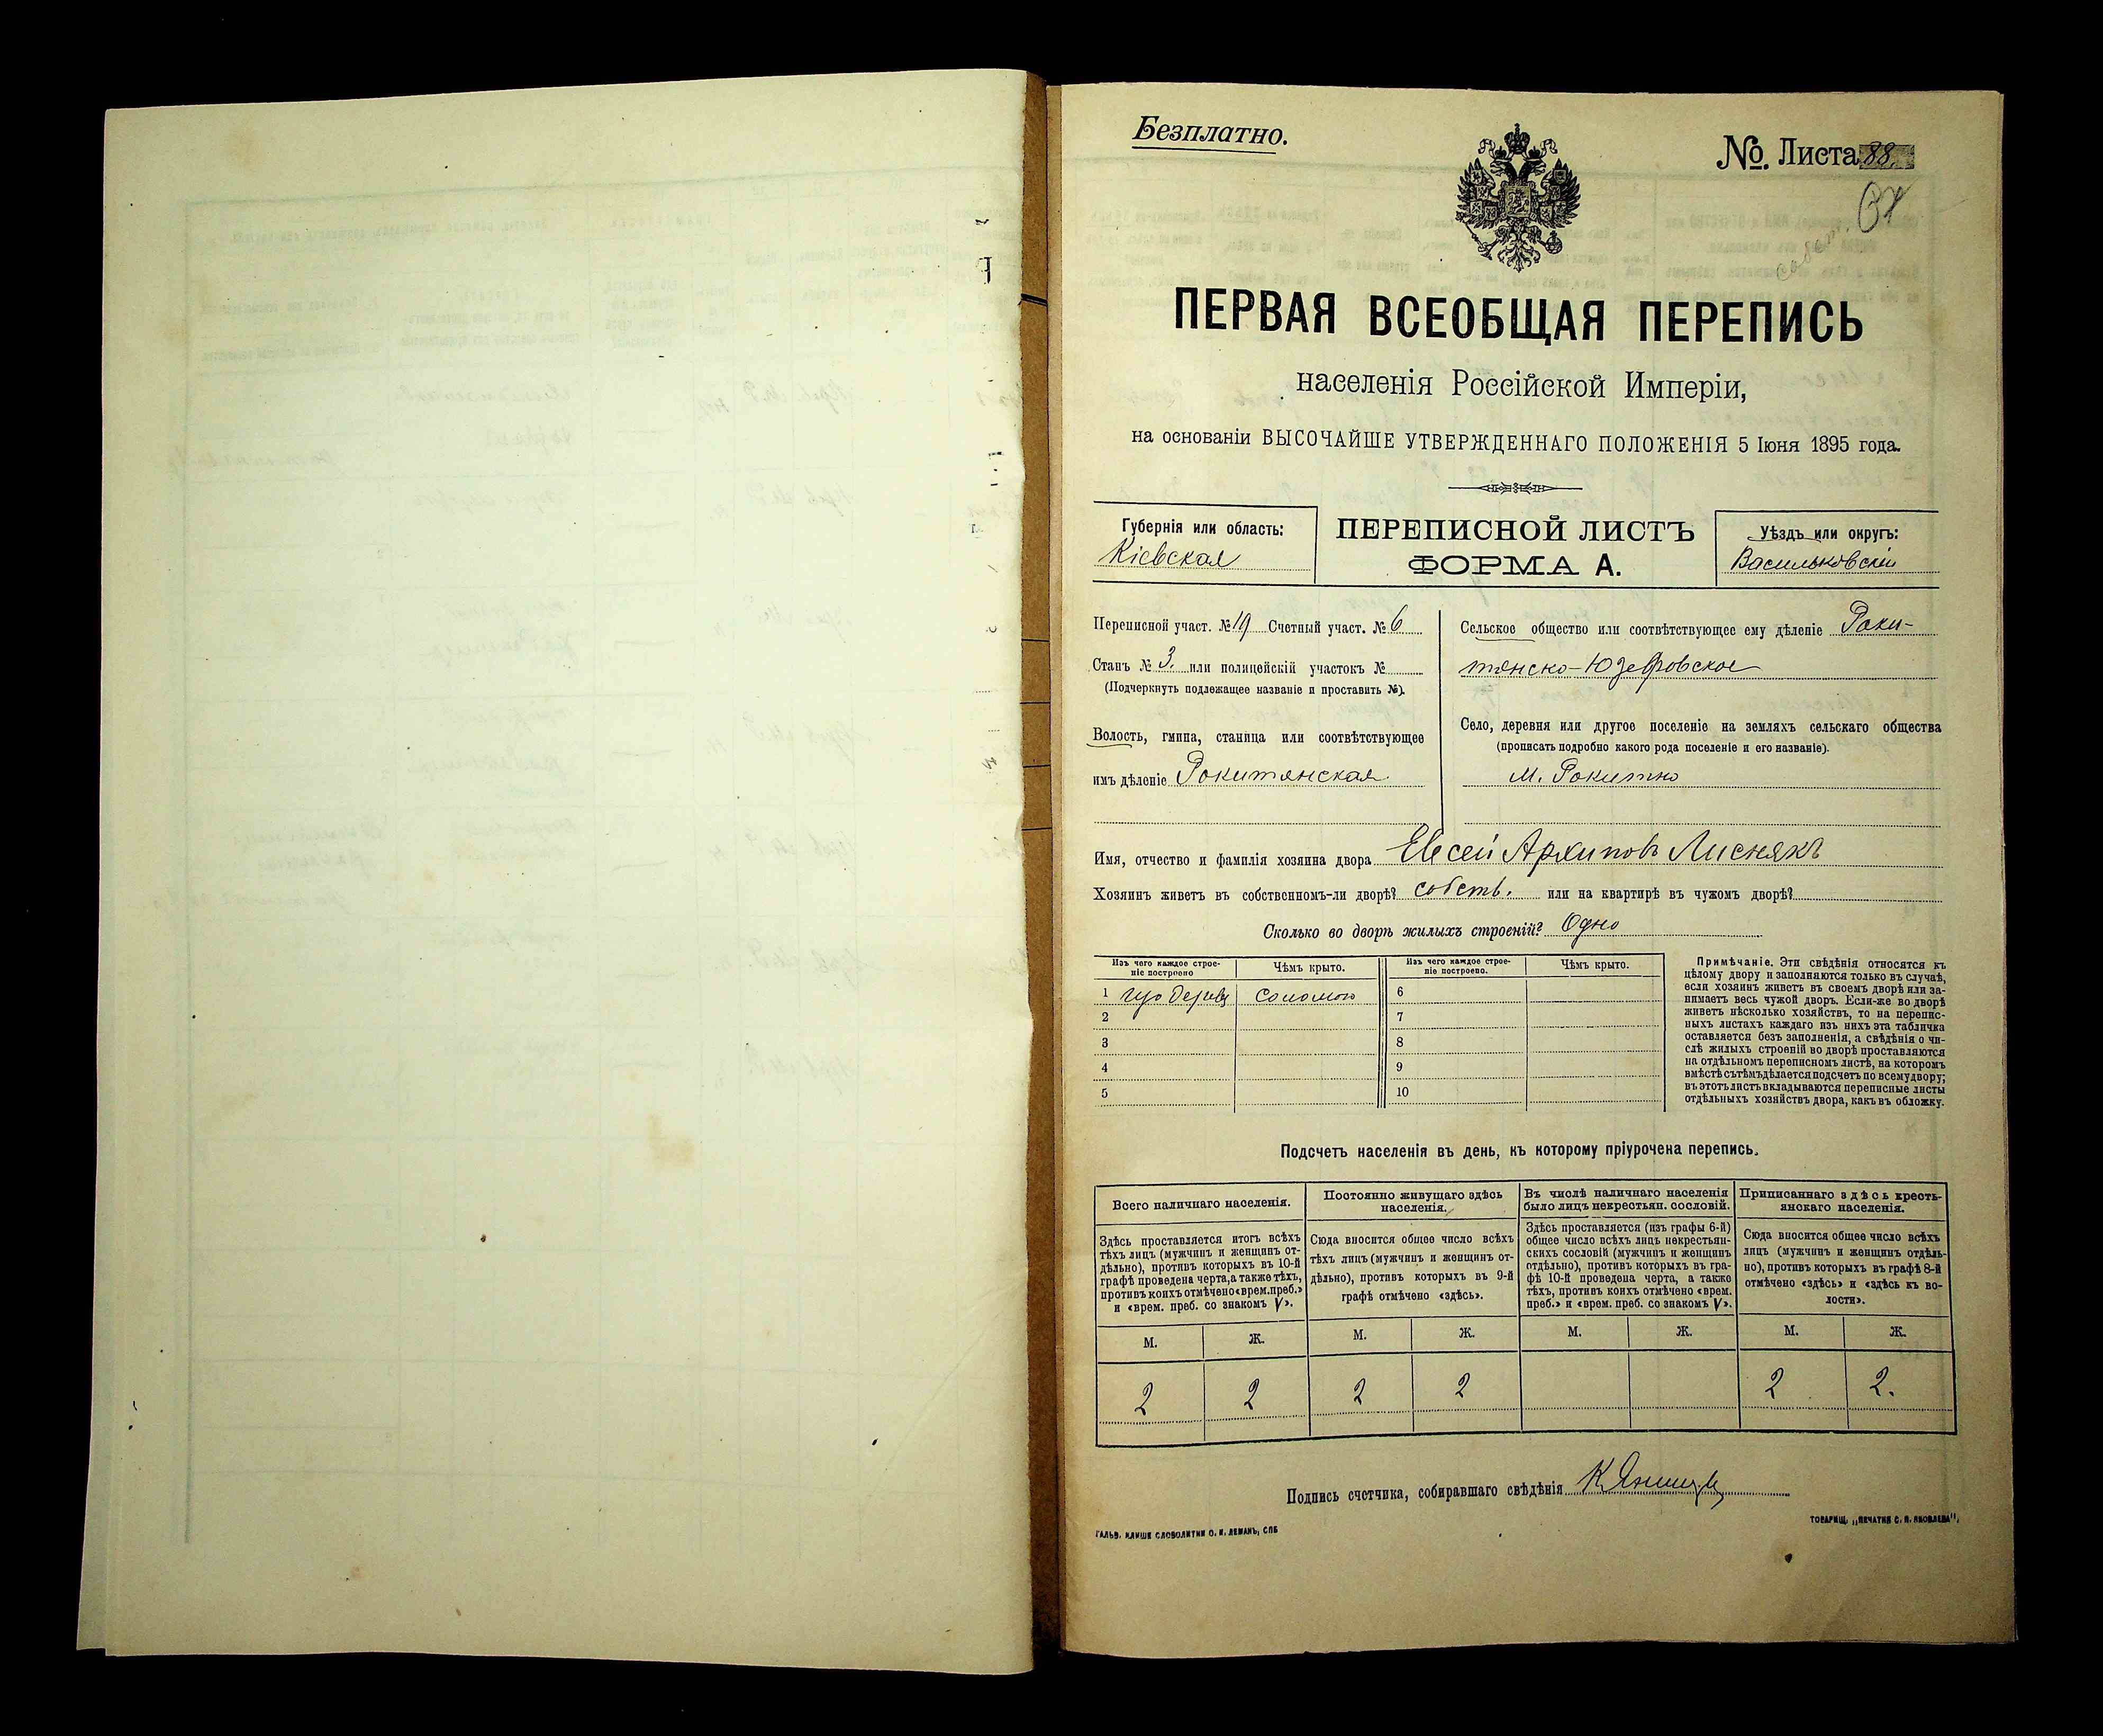 Безплатно.
№. Листа 88
ПЕРВАЯ ВСЕОБЩАЯ ПЕРЕПИСЬ
населенія Россійской Имперіи,
на основаніи ВЫСОЧАЙШЕ УТВЕРЖДЕННАГО ПОЛОЖЕНІЯ 5 Іюня 1895 года.
Губернія или область:
Кіевская
ПЕРЕПИСНОЙ ЛИСТЪ
ФОРМА А.
Уѣздъ или округъ:
Васильковскій
Переписной участ. № 19 Счетный участ. № 6
Станъ № 3. или полицейскій участокъ №
(Подчеркнуть подлежащее названіе и проставить №).
Волость, гмина, станица или соотвѣтствующее
имъ дѣленіе Рокитянская
Сельское общество или соотвѣтствующее ему дѣленіе Роки-
тянско-Юзефовское
Село, деревня или другое поселеніе на земляхъ сельскаго общества
(прописать подробно какого рода поселеніе и его названіе).
М. Рокитно
Имя, отчество и фамилія хозяина двора Евсей Архиповъ Лиснякъ
Хозяинъ живетъ въ собственномъ-ли дворѣ? собств. или на квартирѣ въ чужомъ дворѣ?
Сколько во дворѣ жилыхъ строеній? Одно
Изъ чего каждое строе-
ніе построено
Чѣмъ крыто.
Изъ чего каждое строе-
ніе построено.
Чѣмъ крыто.
1 соломою 6
2 7
3 8
4 9
5 10
Примѣчаніе. Эти свѣдѣнія относятся къ
цѣлому двору и заполняются только въ случаѣ,
если хозяинъ живетъ въ своемъ дворѣ или за-
нимаетъ весь чужой дворъ. Если-же во дворѣ
живетъ нѣсколько хозяйствъ, то на перепис-
ныхъ листахъ каждаго изъ нихъ эта табличка
оставляется безъ заполненія, а свѣдѣнія о чи-
слѣ жилыхъ строеній во дворѣ проставляются
на отдѣльномъ переписномъ листѣ, на которомъ
вмѣстѣ съ тѣмъ дѣлается подсчетъ по всему двору;
въ этотъ листъ вкладываются переписные листы
отдѣльныхъ хозяйствъ двора, какъ въ обложку.
Подсчетъ населенія въ день, къ которому пріурочена перепись.
Всего наличнаго населенія.
Здѣсь проставляется итогъ всѣхъ
тѣхъ лицъ (мужчинъ и женщинъ от-
дѣльно), противъ которыхъ въ 10-й
графѣ проведена черта, а также тѣхъ,
противъ коихъ отмѣчено «врем. преб.»
и «врем. преб. со знакомъ V».
Постоянно живущаго здѣсь
населенія.
Сюда вносится общее число всѣхъ
тѣхъ лицъ (мужчинъ и женщинъ от-
дѣльно), противъ которыхъ въ 9-й
графѣ отмѣчено «здѣсь».
Въ числѣ наличнаго населенія
было лицъ некрестьян. сословій.
Здѣсь проставляется (изъ графы 6-й)
общее число всѣхъ лицъ некрестьян-
скихъ сословій (мужчинъ и женщинъ
отдѣльно), противъ которыхъ въ гра-
фѣ 10-й проведена черта, а также
тѣхъ, противъ коихъ отмѣчено «врем.
преб.» и «врем. преб. со знакомъ V».
Приписаннаго здѣсь кресть-
янскаго населенія.
Сюда вносится общее число всѣхъ
лицъ (мужчинъ и женщинъ отдѣль-
но), противъ которыхъ въ графѣ 8-й
отмѣчено «здѣсь» и «здѣсь къ во-
лости».
М. Ж. М. Ж. М. Ж. М. Ж.
2 2 2 2 2 2.
Подпись счетчика, собиравшаго свѣдѣнія
ГАЛЬВ. КЛИШЕ СЛОВОЛИТНИ О. И. ЛЕМАНЪ, СПБ
ТОВАРИЩ. „ПЕЧАТНЯ С. П. ЯКОВЛЕВА".